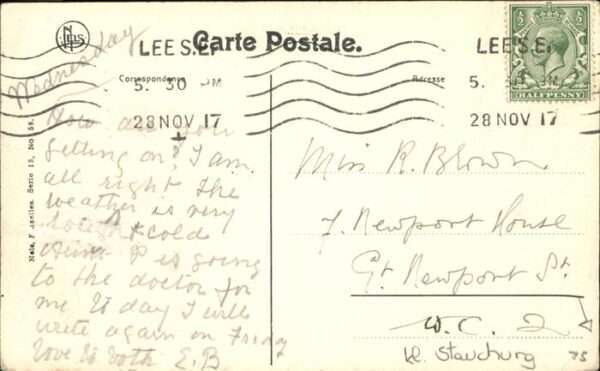 Nels
Carte Postale.
Correspondance
Adresse
LEE S.E.
5. 30 PM
28 NOV 17
LEE S.E.
5.
28 NOV 17
HALFPENNY
Nels, Bruxelles. Serie 13, No
Wednesday
How are you
getting on? I am
all right the
weather is very
& cold
is going
to the doctor for
me to day I will
write again on Friday
love to both E.B
Miss R. Blown
7. Newport House
Gt. Newport St.
W. C. 2
75